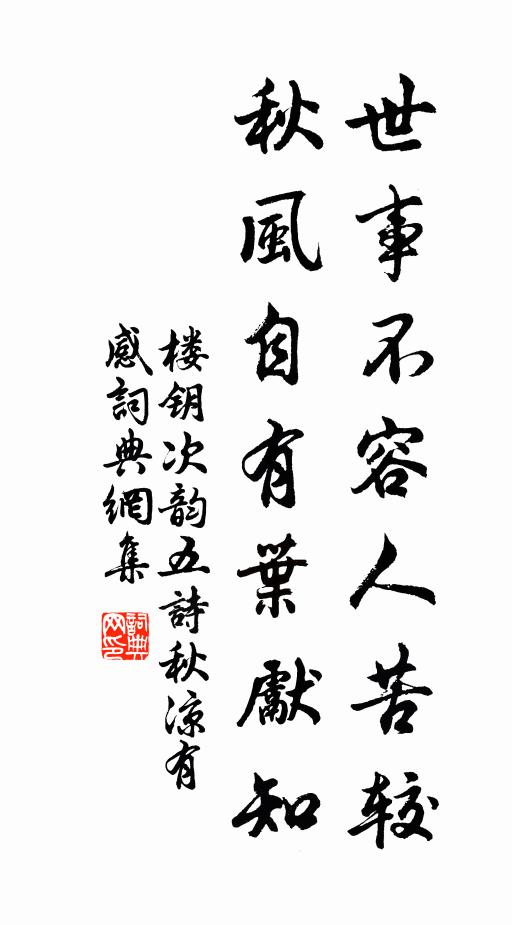 世事不容人苦较
秋風自有葉獻知
楼钥次韵五詩秋凉有
感詞典網集
詞典网印